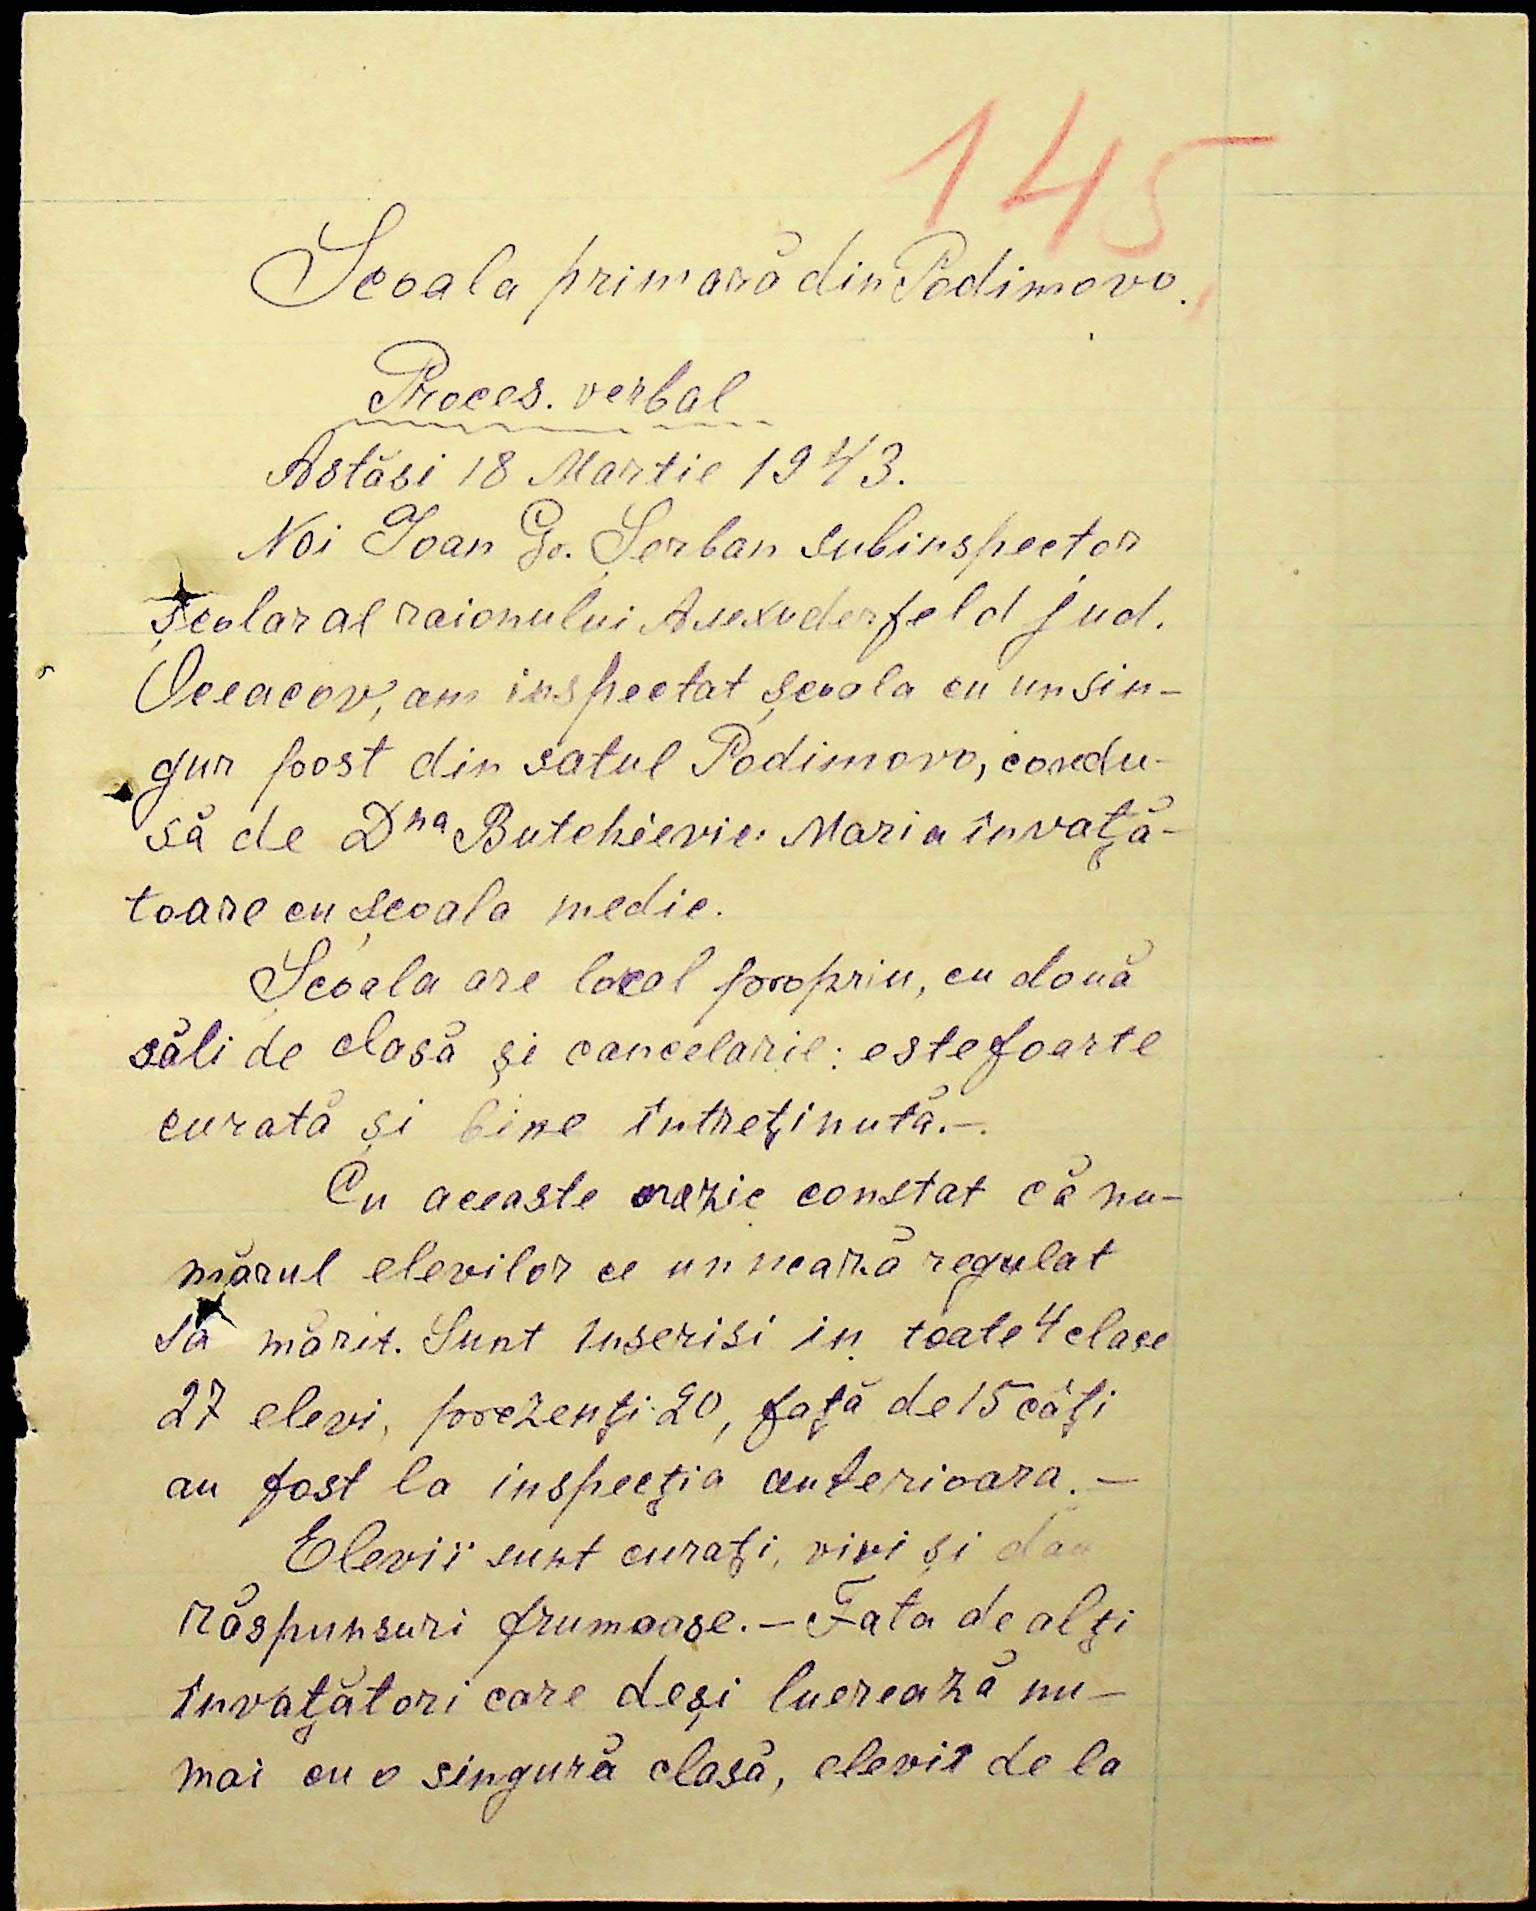 145
Școala primară din Podimovo.
Proces. verbal
Astăsi 18 Martie 1943.
Noi Ioan Gr. Șerban subinspector
școlar al raionului Alexuderfeld jud.
Oceacov, am inspectat școala cu un sin-
gur post din satul Podimovo, condu-
să de Dna Butchievici Maria învață-
toare cu școala medie.
Școala are local propriu, cu două
săli de clasă și cancelarie: este foarte
curată și bine întreținută.-.
Cu aceaste orazie constat că nu-
mărul elevilor ce urmează regulat
sa mărit. Sunt înscrisi in toate 4 clase
27 elevi, prezenți 20, față de 15 câți
au fost la inspecția anterioara.-
Elevii sunt curați, vivi și dau
răspunsuri frumoase.- Fata de alți
învațători care deși lucrează nu-
mai cu o singură clasă, elevii de la